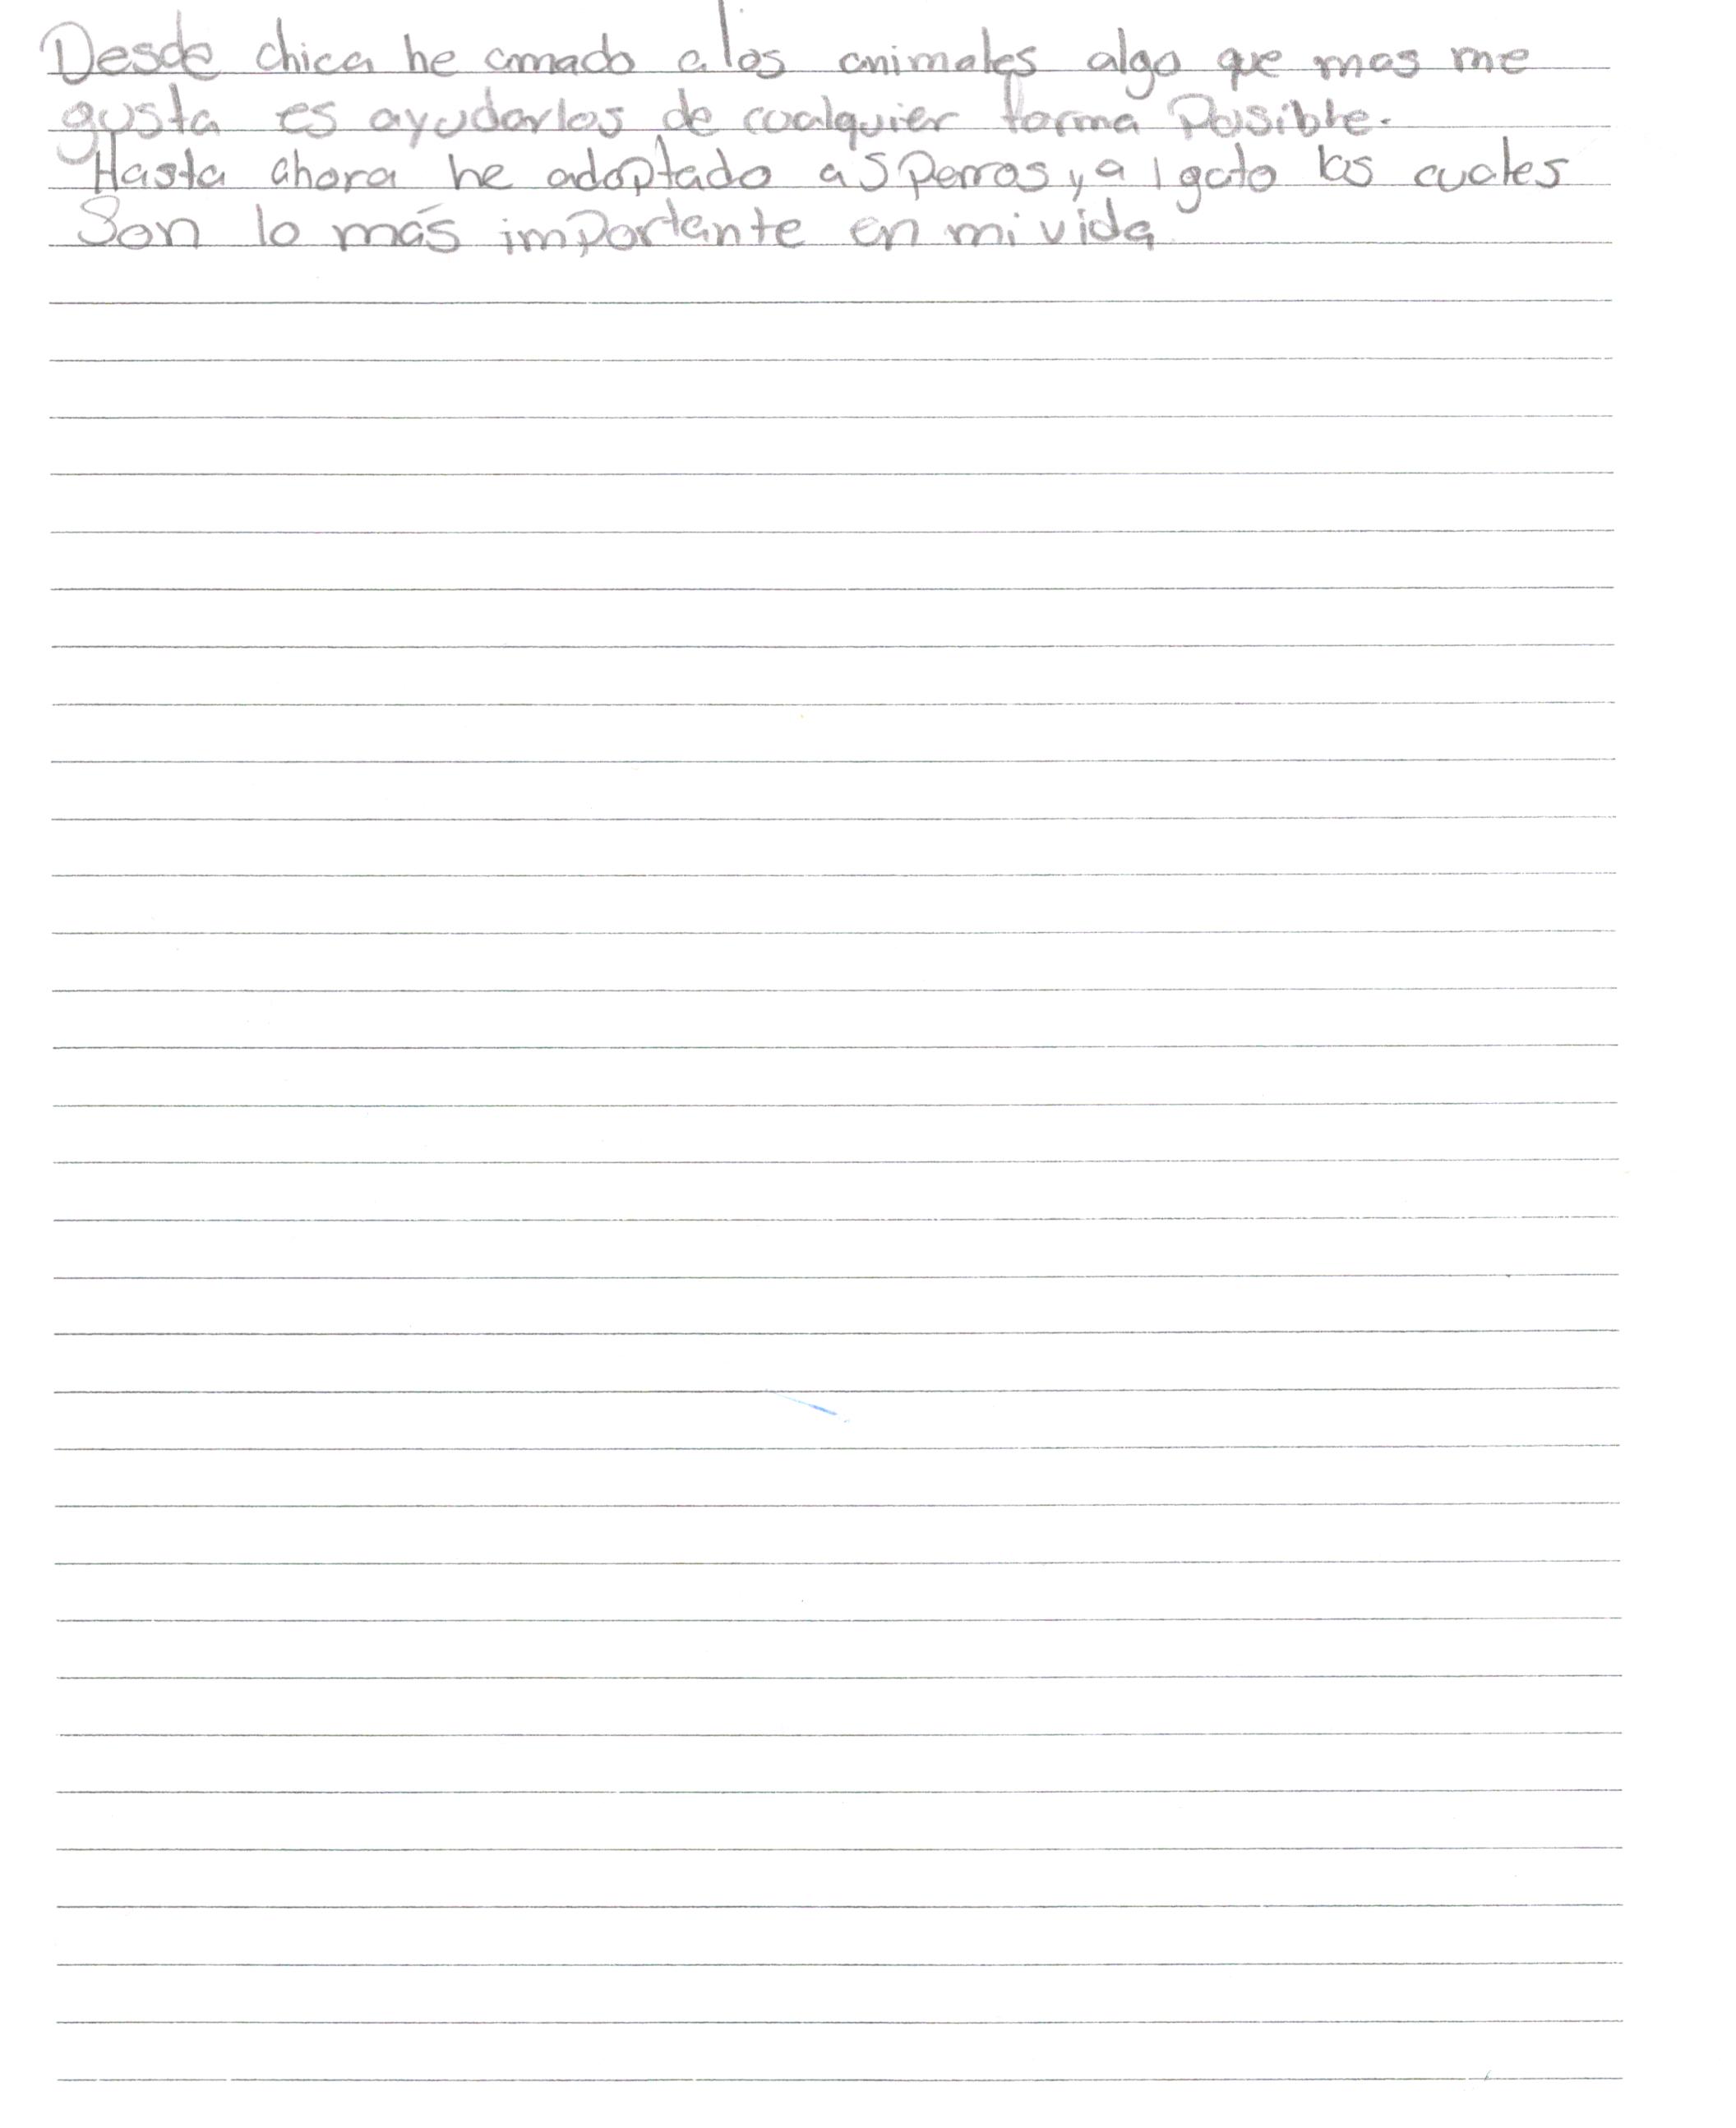 Desde chica he amado a los animales algo que mas me
gusta es ayudarlos de cualquier forma Posible.
Hasta ahora he adoptado a 5 perros y a 1 gato los cuales
Son lo más importante en mi vida